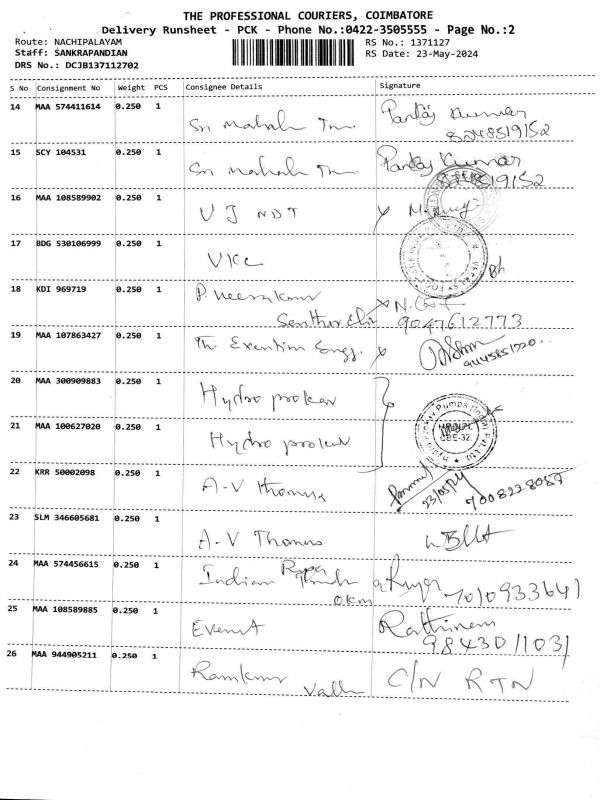 THE PROFESSIONAL COURIERS, COIMBATORE
Delivery Runsheet - PCK - Phone No.:0422-3505555 - Page No.:2
Route: NACHIPALAYAM
Staff: SANKRAPANDIAN
DRS No.: DCJB137112702
RS No.: 1371127
RS Date: 23-May-2024
S No Consignment No Weight PCS Consignee Details Signature
14 MAA 574411614 0.250 1 Sri Pankaj Kumar
8248519152
15 SCY 104531 0.250 1 Sri Pankaj Kumar
8248519152
16 MAA 108589902 0.250 1 V J NDT
17 BDG 530106999 0.250 1 VKC
18 KDI 969719 0.250 1 P.
9047612773
19 MAA 107863427 0.250 1 The Engg.
20 MAA 300909883 0.250 1 Hydro
21 MAA 100627020 0.250 1 Hydro
Pumps (India) Pvt. Ltd.
CBE-32.
22 KRR 50002098 0.250 1 A-V Thomas
23/05/24
23 SLM 346605681 0.250 1 A-V Thomas
24 MAA 574456615 0.250 1 Indian
7010933641
25 MAA 108589885 0.250 1 Rathinam
9843011031
26 MAA 944905211 0.250 1 Ramkumar C/N RTN